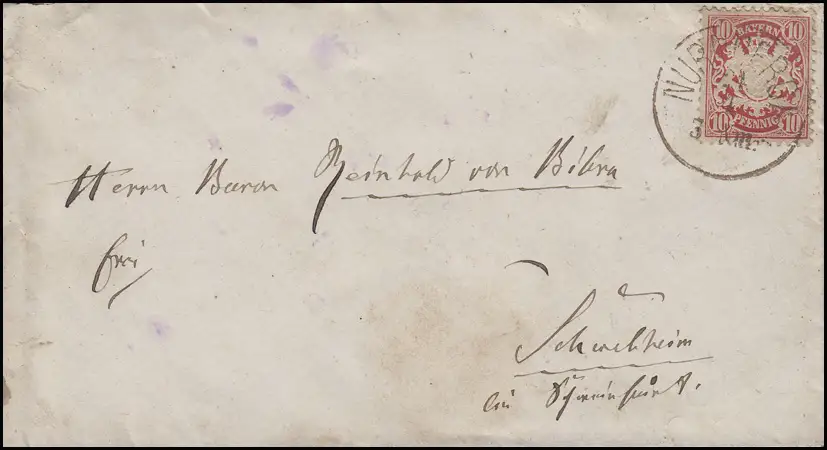 10 BAYERN 10
10 PFENNIG 10
NÜRNBERG I
Herrn Baron Reinhold von Bibra
frei
Schwebheim
bei Schweinfurt.